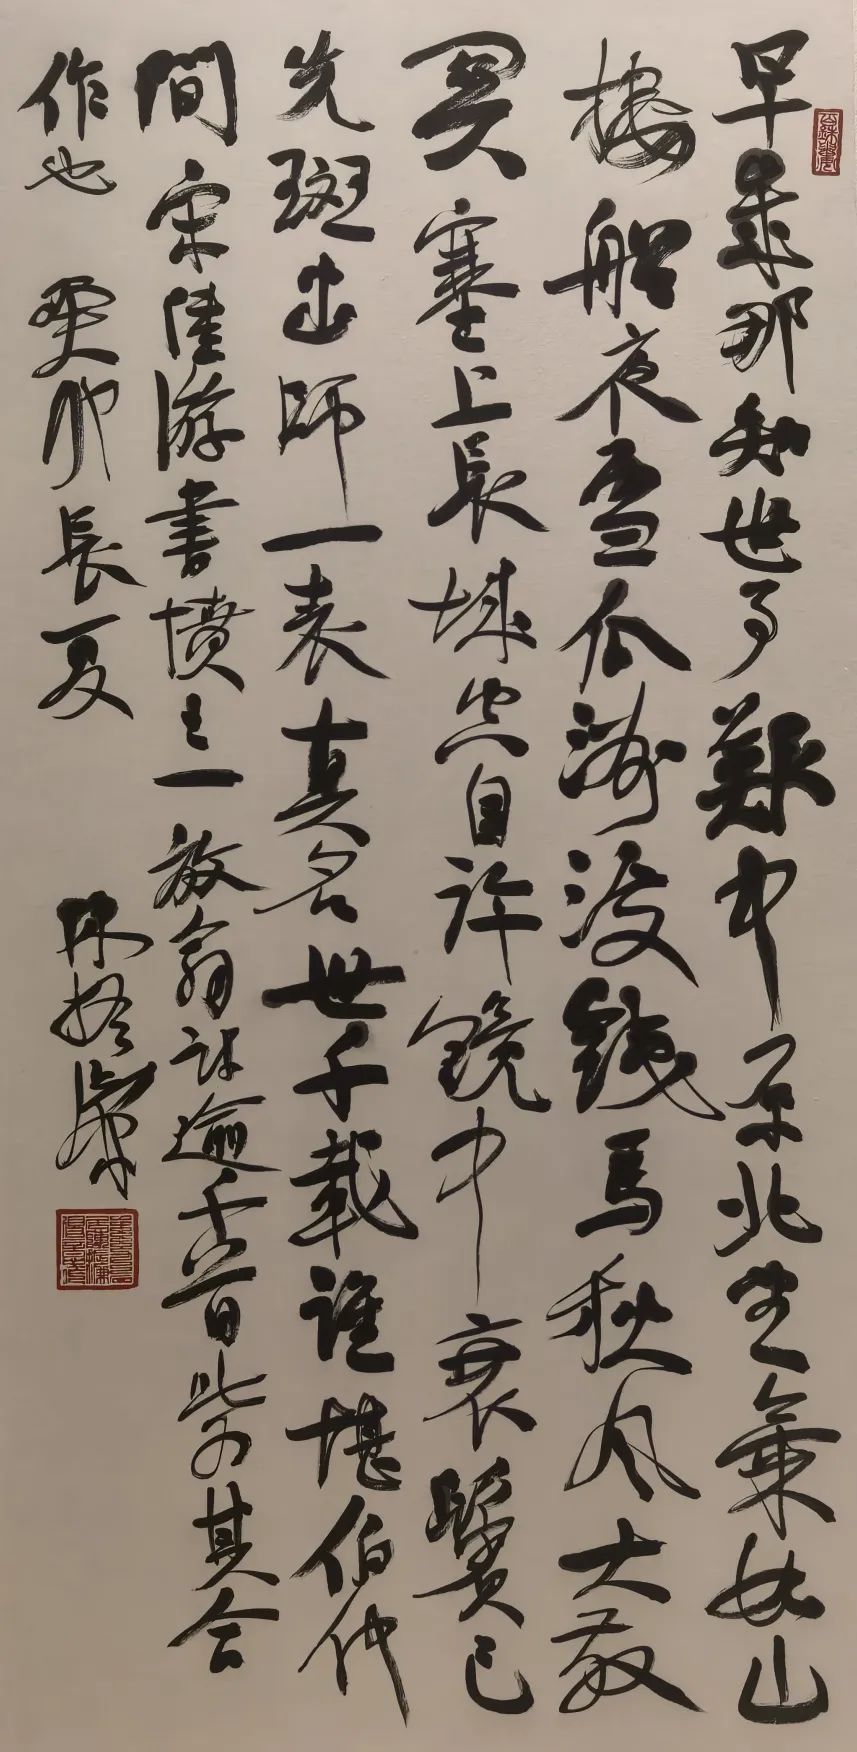 早歲那知世事艱中原北望氣如山
樓船夜雪瓜洲渡鐵馬秋風大散
關塞上長城空自許鏡中衰鬢已
先斑出師一表真名世千載誰堪伯仲
間宋陸游書憤之一放翁詩逾千百此為其合
作也 癸卯長夏 陳振濂